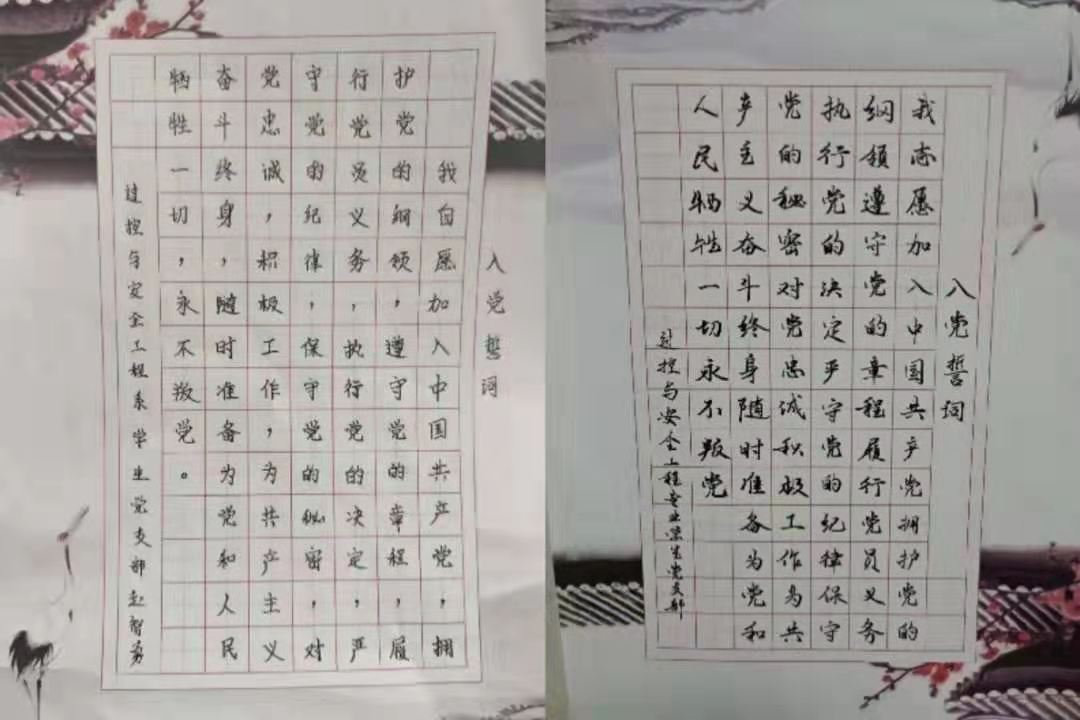 入党誓词
我自愿加入中国共产党，拥
护党的纲领，遵守党的章程，履
行党员义务，执行党的决定，严
守党的纪律，保守党的秘密，对
党忠诚，积极工作，为共产主义
奋斗终身，随时准备为党和人民
牺牲一切，永不叛党。
过控与安全工程系学生党支部赵智勇
入党誓词
我志愿加入中国共产党拥护党的
纲领遵守党的章程履行党员义务
执行党的决定严守党的纪律保守
党的秘密对党忠诚积极工作为共
产主义奋斗终身随时准备为党和
人民牺牲一切永不叛党
过控与安全工程专业学生党支部